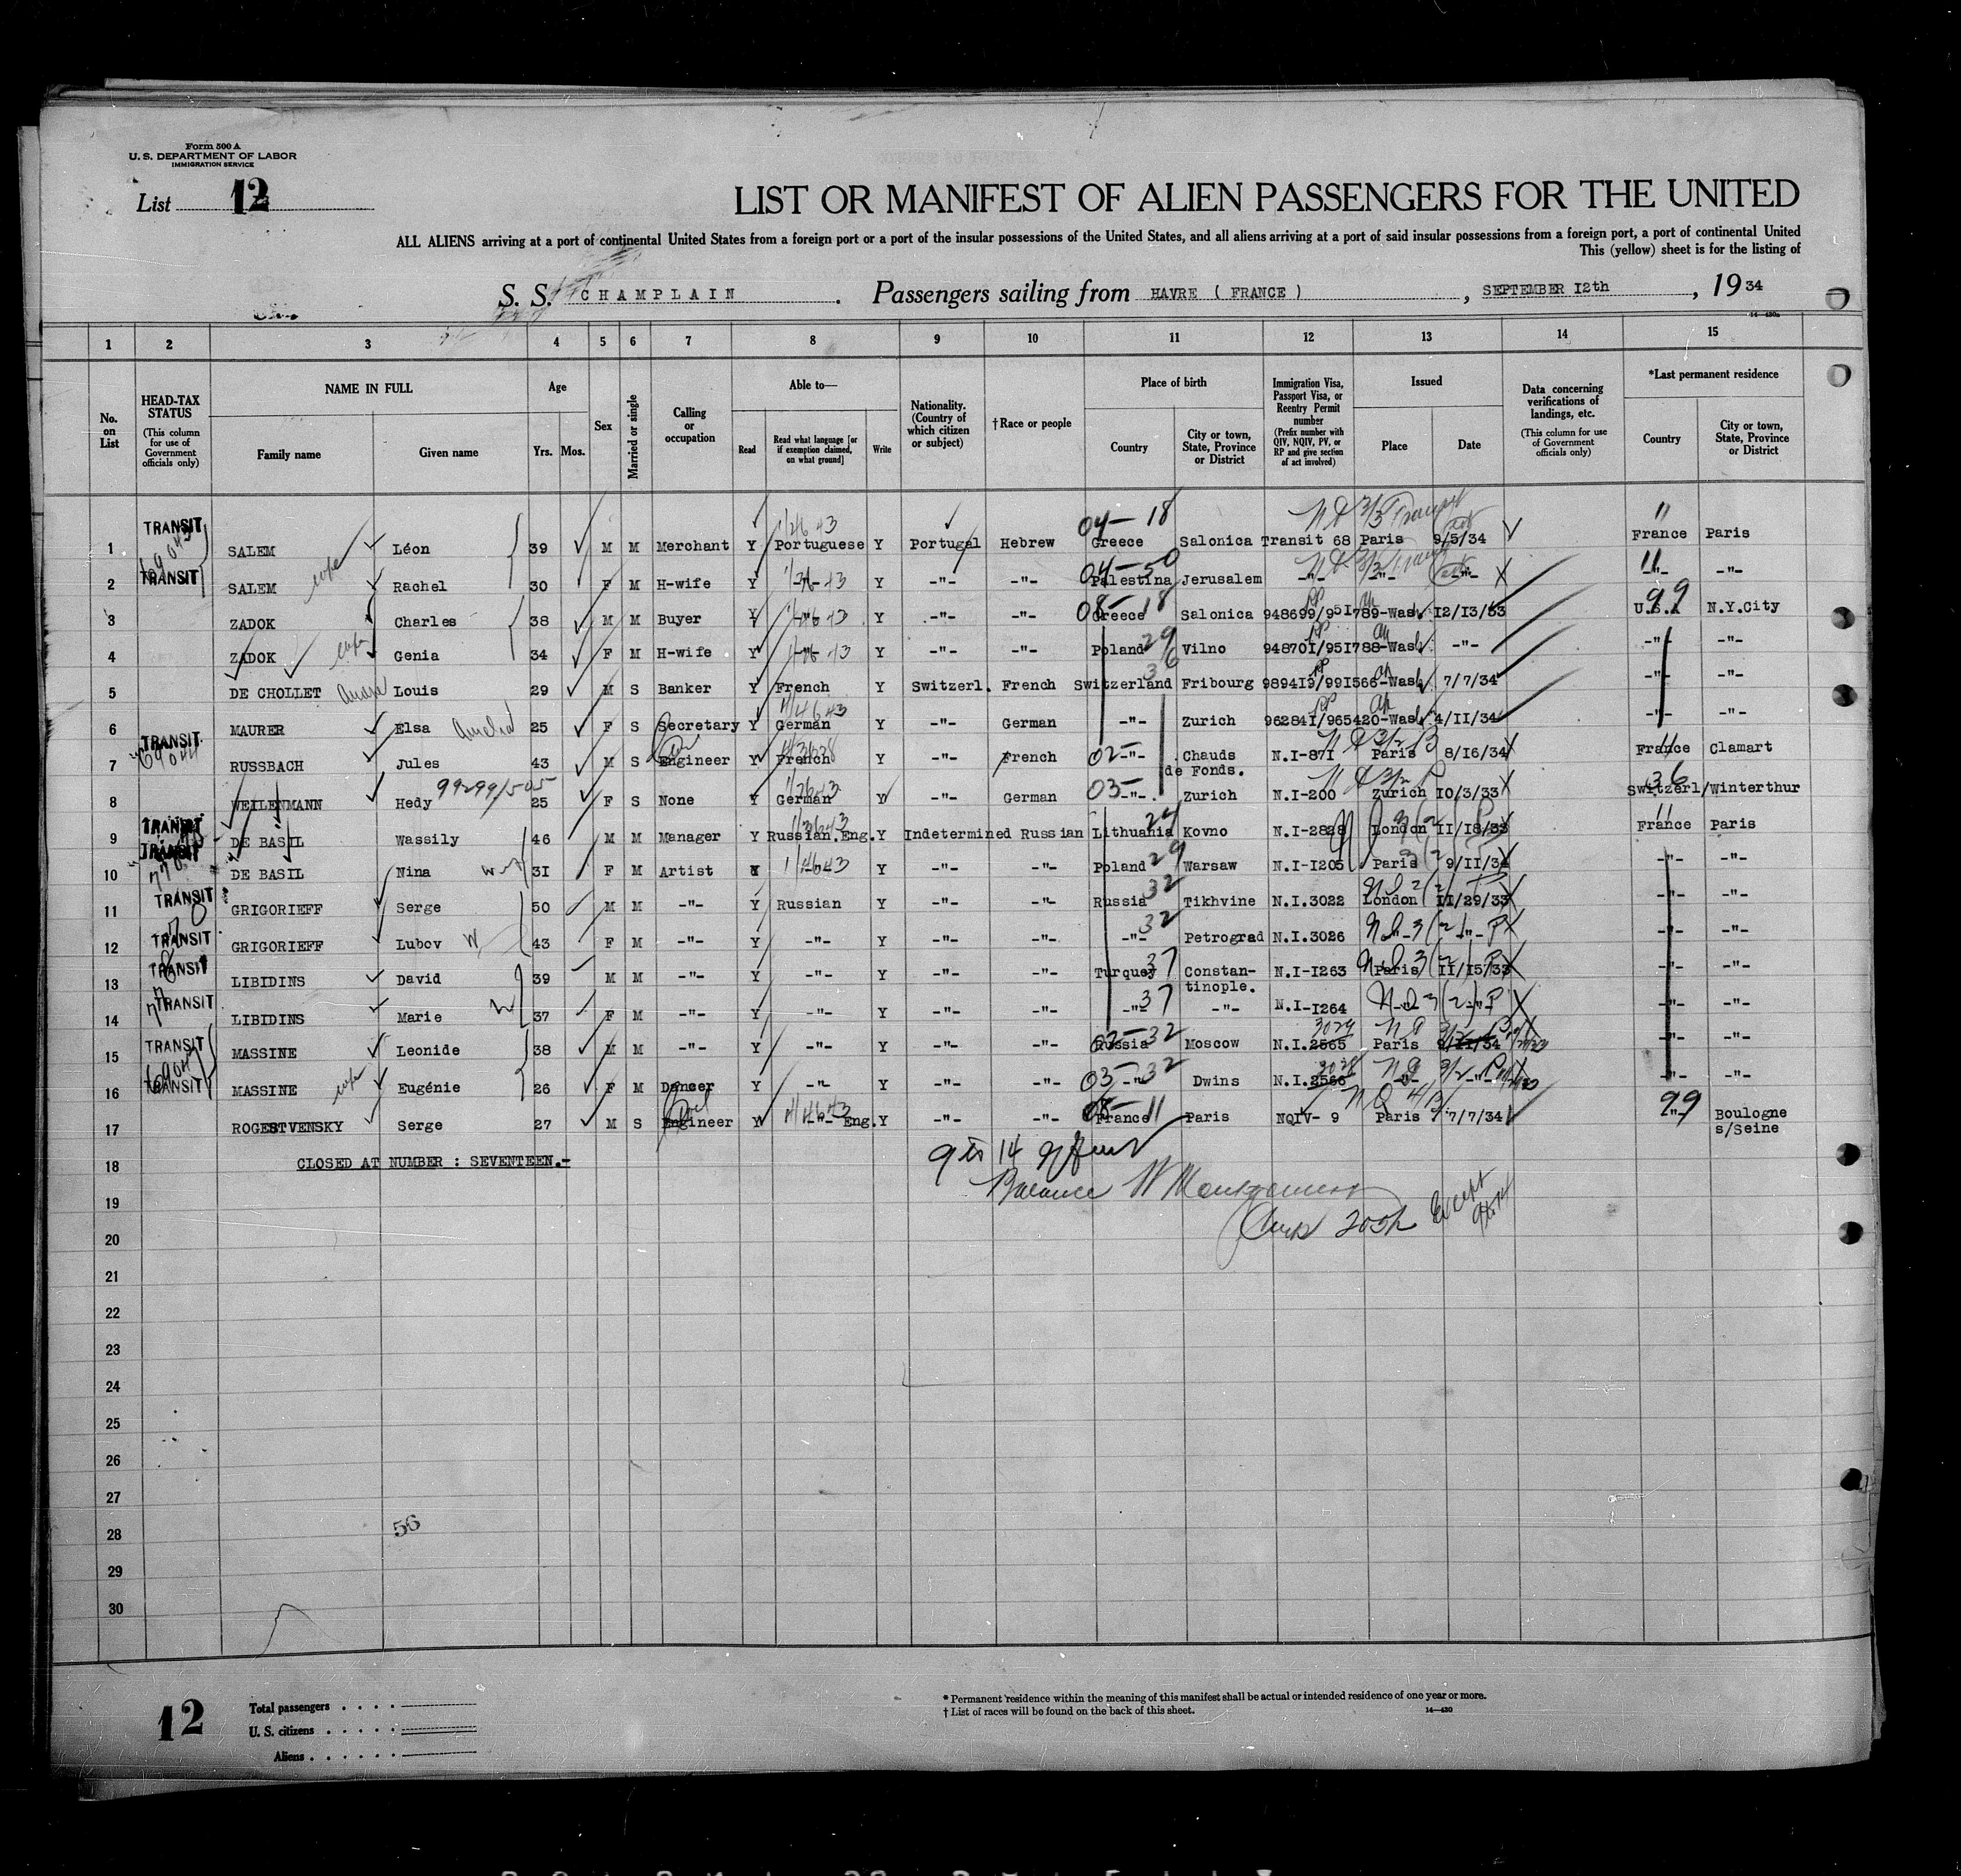 Form 500 A
U. S. DEPARTMENT OF LABOR
IMMIGRATION SERVICE
List 12
LIST OR MANIFEST OF ALIEN PASSENGERS FOR THE UNITED
ALL ALIENS arriving at a port of continental United States from a foreign port or a port of the insular possessions of the United States, and all aliens arriving at a port of said insular possessions from a foreign port, a port of continental United
This (yellow) sheet is for the listing of
S. S. CHAMPLAIN. Passengers sailing from HAVRE ( FRANCE ), SEPTEMBER I2th, 1934
14—430a
1 2 3 4 5 6 7 8 9 10 11 12 13 14 15
No. on List
HEAD-TAX STATUS
(This column for use of Government officials only)
NAME IN FULL
Family name Given name
Age
Yrs. Mos.
Sex
Married or single
Calling or occupation
Able to—
Read
Read what language [or if exemption claimed, on what ground]
Write
Nationality. (Country of which citizen or subject)
†Race or people
Place of birth
Country
City or town, State, Province or District
Immigration Visa, Passport Visa, or Reentry Permit number
(Prefix number with QIV, NQIV, PV, or RP and give section of act involved)
Issued
Place Date
Data concerning verifications of landings, etc.
(This column for use of Government officials only)
*Last permanent residence
Country
City or town, State, Province or District
1 TRANSIT SALEM Léon 39 M M Merchant Y Portuguese Y Portugal Hebrew 04-18 Greece Salonica Transit 68 Paris 9/5/34 11 France Paris
2 TRANSIT SALEM wife Rachel 30 F M H-wife Y Y -"- -"- 04-50 Palestina Jerusalem -"- -"- -"- 11 -"- -"-
3 ZADOK Charles 38 M M Buyer Y -"- Y -"- -"- 08-18 Greece Salonica 948699/95I789-Wash. I2/I3/33 99 U.S.A N.Y.City
4 ZADOK wife Genia 34 F M H-wife Y -"- Y -"- -"- Poland 29 Vilno 94870I/95I788-Wash. -"- -"- -"-
5 DE CHOLLET Louis 29 M S Banker Y French Y Switzerl. French Switzerland 36 Fribourg 9894I9/99I566-Wash. 7/7/34 -"- -"-
6 MAURER Elsa Amelia 25 F S Secretary Y German Y -"- German -"- Zurich 96284I/965420-Wash. 4/II/34 -"- -"-
7 TRANSIT 69044 RUSSBACH Jules 43 M S Engineer Y French Y -"- French 02 -"- Chauds de Fonds. N.I-87I Paris 8/I6/34 11 France Clamart
8 WEILENMANN Hedy 99299/505 25 F S None Y German Y -"- German 03 -"- Zurich N.I-200 Zurich I0/3/33 36 Switzerl/Winterthur
9 TRANSIT DE BASIL Wassily 46 M M Manager Y Russian.Eng. Y Indetermined Russian Lithuania 24 Kovno N.I-2828 London II/I8/33 11 France Paris
10 TRANSIT DE BASIL Nina 3I F M Artist Y -"- Y -"- -"- Poland 29 Warsaw N.I-I205 Paris 9/II/34 -"- -"-
11 TRANSIT GRIGORIEFF Serge 50 M M -"- Y Russian Y -"- -"- Russia 32 Tikhvine N.I.3022 London II/29/33 -"- -"-
12 TRANSIT GRIGORIEFF W Lubov 43 F M -"- Y -"- Y -"- -"- -"- 32 Petrograd N.I.3026 -"- -"- -"- -"-
13 TRANSIT LIBIDINS David 39 M M -"- Y -"- Y -"- -"- Turquey 37 Constantinople. N.I-I263 Paris II/I5/33 -"- -"-
14 TRANSIT LIBIDINS Marie W 37 F M -"- Y -"- Y -"- -"- -"- 37 -"- N.I-I264 -"- -"- -"- -"-
15 TRANSIT MASSINE Leonide 38 M M -"- Y -"- Y -"- -"- 32 Russia Moscow N.I.2565 Paris 9/II/34 -"- -"-
16 TRANSIT MASSINE wife Eugénie 26 F M Dancer Y -"- Y -"- -"- 03-32 -"- Dwins N.I.2566 -"- -"- -"- -"-
17 ROGESTVENSKY Serge 27 M S Engineer Y -"- Eng. Y -"- -"- 08-11 France Paris NQIV- 9 Paris 7/7/34 99 -"- Boulogne s/Seine
18 CLOSED AT NUMBER : SEVENTEEN.-
9 to 14
19 Balance
20 Except
21
22
23
24
25
26
27
28
29
30
56
12
Total passengers
U. S. citizens
Aliens
* Permanent residence within the meaning of this manifest shall be actual or intended residence of one year or more.
† List of races will be found on the back of this sheet.
14—430